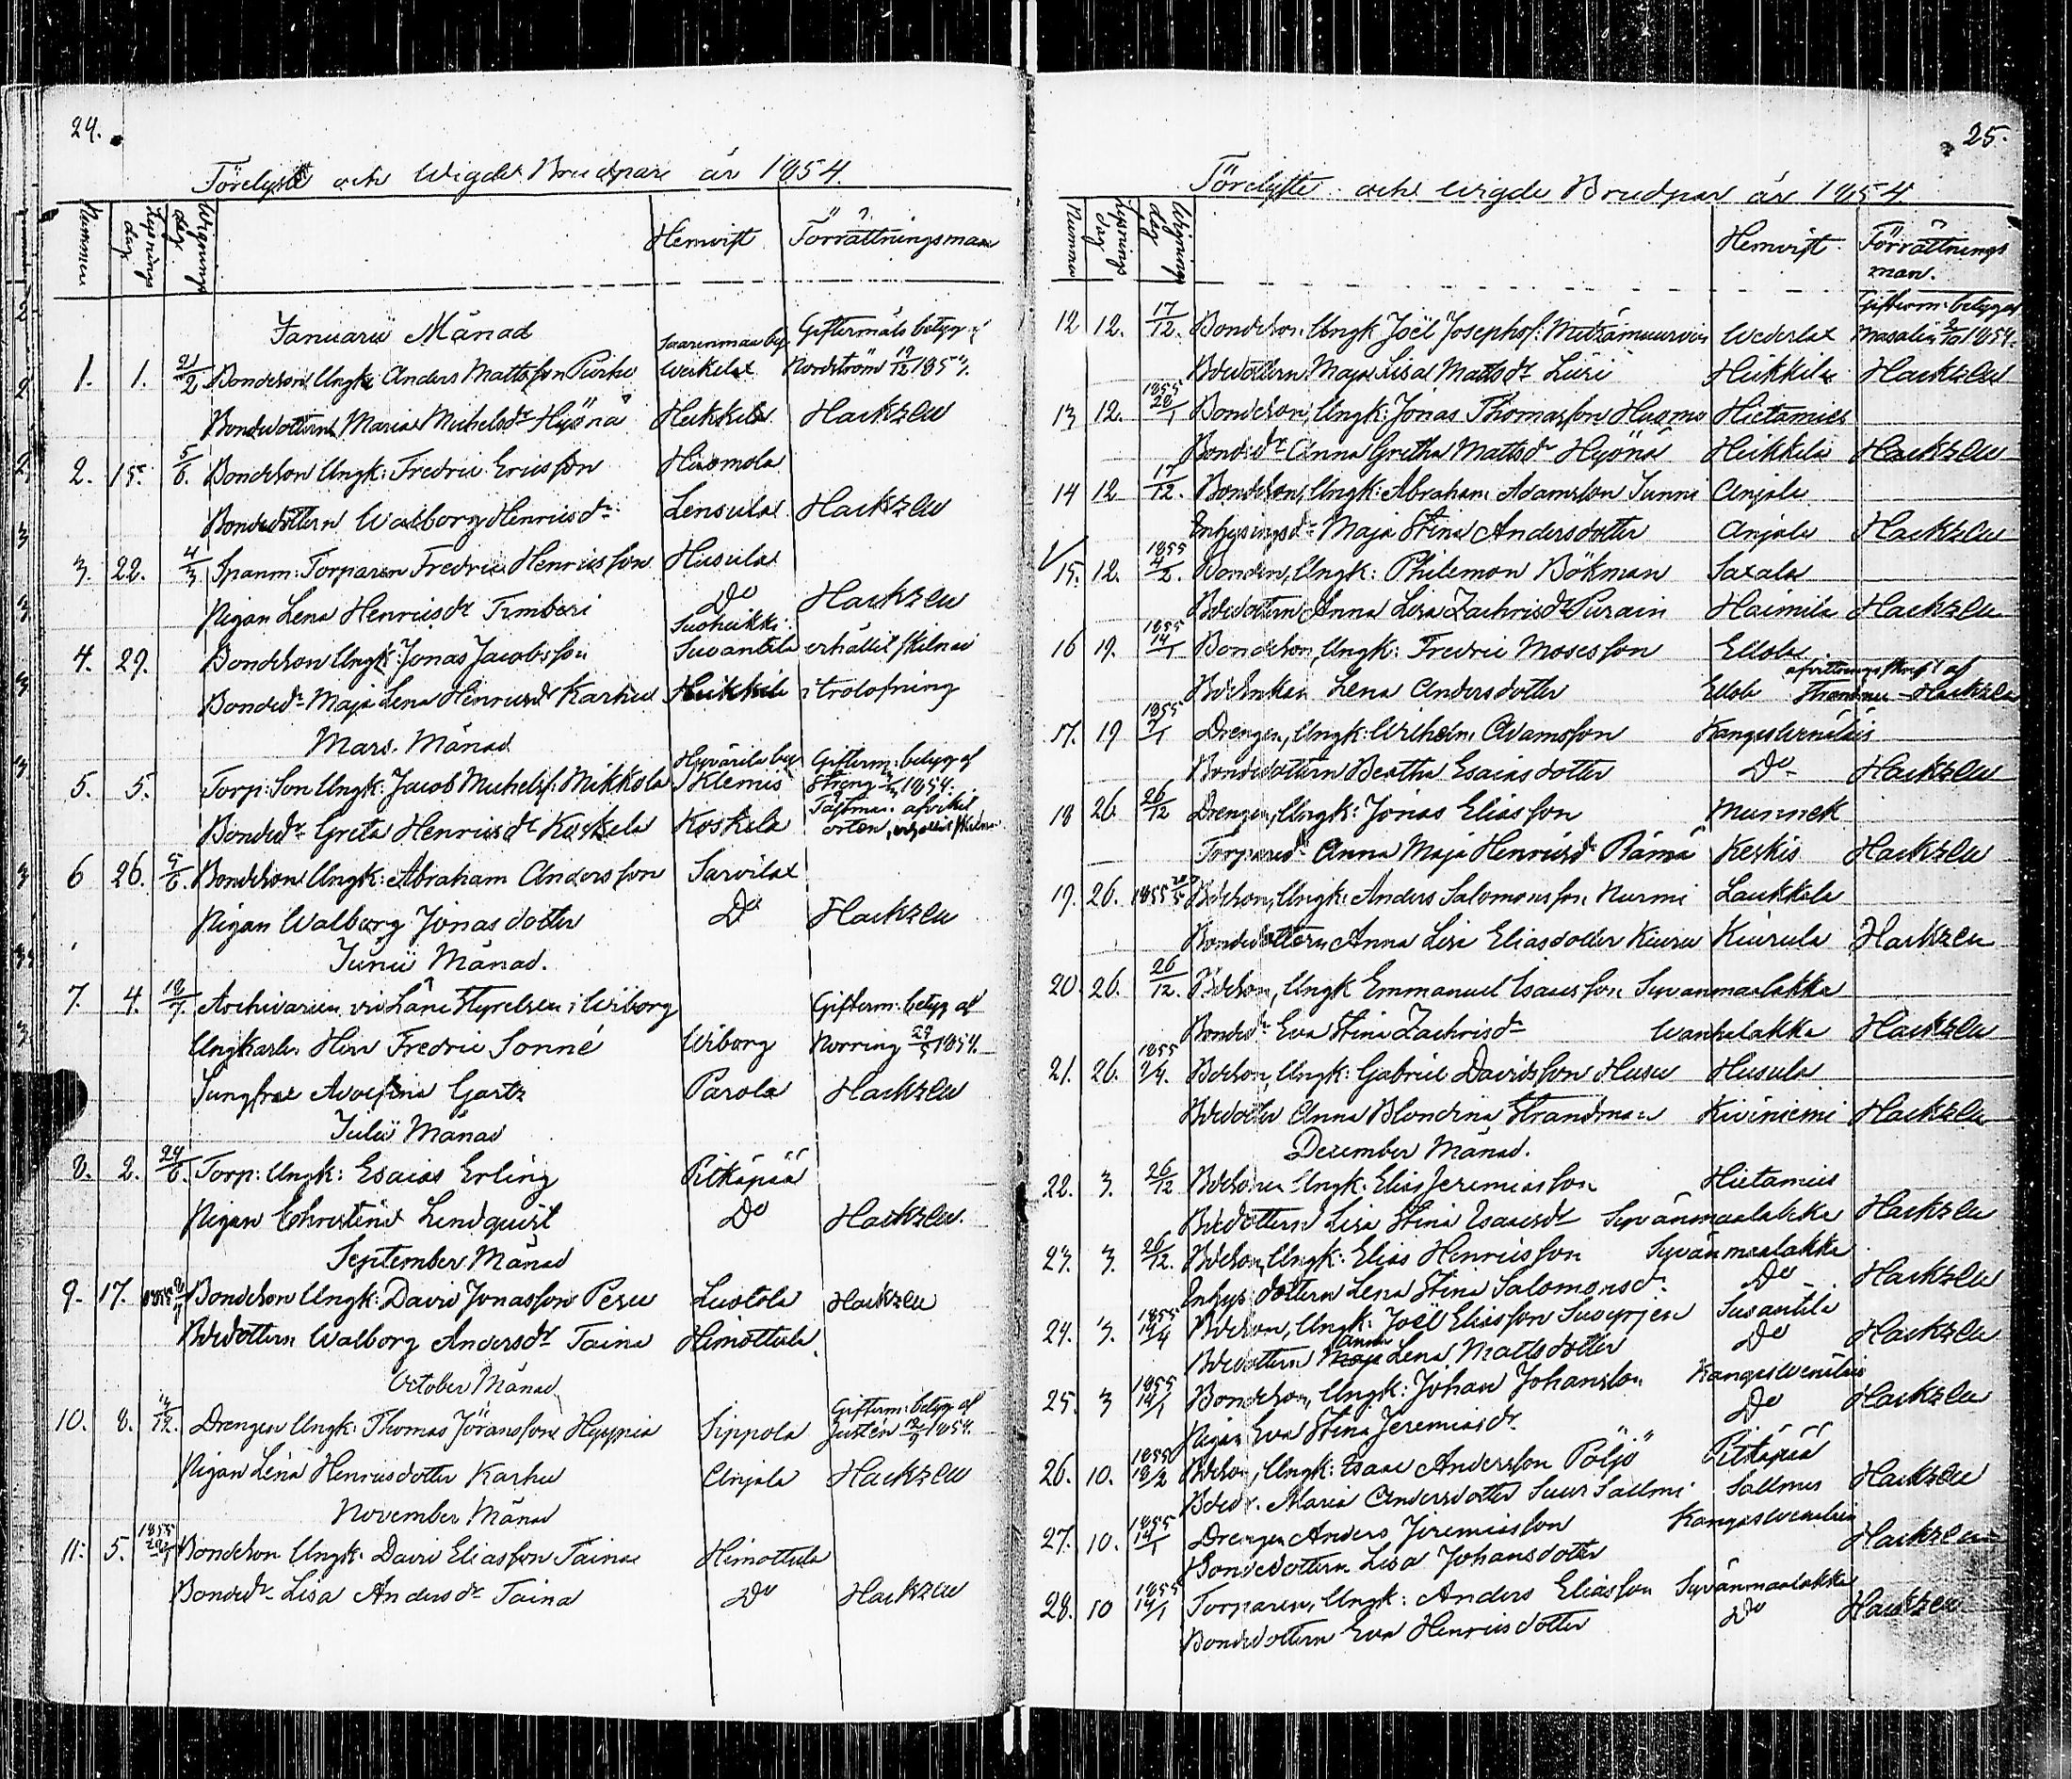 24.
Förelyste och Wigde Brudpar år 1854.
Nummer Lysnings dag Wignings dag Hemvist Förrättningsman
Januarii Månad
Giftermåls betyg af
1. 1. 21/2 Bondeson Ungk: Anders Mattsson Wirkelax Nordström 19/12 1853.
Bondedottern Maria Michelsdr Hyönä Heikkilä Hackzell
2. 15. 5/6. Bondeson Ungk: Fredric Ericsson Husmola
Bondedottern Walborg Henricsdr Lensula Hackzell
3. 22. 4/3 Spanm: Torparen Fredric Henricsson Husula
Pigan Lena Henricsdr Timberi Do Hackzell
Suoheikki
4. 29. Bondeson Ungk: Jonas Jacobsson Suvantila erhållit skilnad
Bondedr Maja Lena Henricsdr Karhu Heikkilä i trolofning
Mars Månad
Hyvärilä by Gifterm: betyg af
5. 5. Torp: Son Ungk: Jacob Michelss: Mikkola Klemis Streng 1854.
Fästman afvikit
Bondedr Greta Henricsdr Koskela Koskela orten, erhållit skilnad
6 26. 5/6. Bondeson Ungk: Abraham Andersson Sarvilax
Pigan Walborg Jonasdotter Do Hackzell
Junii Månad.
7. 4. 18/7. Archivarien vid Läne Styrelsen i Wiborg Gifterm: betyg af
Ungkarlen Herr Fredric Sonné Wiborg Norring 29/5 1854.
Jungfru Adolfina Gartz Parola Hackzell
Julii Månad
8. 2. 24/6. Torp: Ungk: Esaias Erling Pitkäpää
Pigan Christina Lindquist Do Hackzell.
September Månad
9. 17. 1855 Bondeson Ungk: David Jonasson Pesu Luotola Hackzell
Bdedottern Walborg Andersdr Taina Himottula.
October Månad
Gifterm: betyg af
10. 8. Drengen Ungk: Thomas Göransson Hyppiä Sippola Justén 1854.
Pigan Lena Henricsdotter Karhu Anjala Hackzell
November Månad
1855
11. 5. Bondeson Ungk: David Eliasson Taina Himottula
Bondedr Lisa Andersdr Taina Do Hackzell
25.
Förelyste och wigde Brudpar år 1854
Nummer Lysnings dag Wignings dag Hemvist Förrättnings man.
Gifterm: betyg af
12 12. 17/12. Bondeson Ungk Joël Josephss: Wederlax Masalin 1854.
Bdedottern Maja Lisa Mattsdr Liiri Heikkilä Hackzell
1855
13 12. 28/1 Bondeson, Ungk: Jonas Thomasson Husmo Hietamies
Bondedr Anna Gretha Mattsdr Hyönä Heikkilä Hackzell
14 12 17/12. Bondeson, Ungk: Abraham Adamsson Junni Anjala
Inhysingsdr Maja Stina Andersdotter Anjala Hackzell
1855
15. 12. 4/2. Bonden, Ungk: Philemon Bökman Saxala
Bdedottern Anna Lisa Zachrisdr Purain Haimila Hackzell
1855
16 19. 14/1 Bondeson, Ungk: Fredric Mosesson Ellola
afvittrings skrift af
Bdeenkan Lena Andersdotter Ellola Hackzell
1855
17. 19 7/1 Drengen, Ungk: Wilhelm Adamsson Kangaswenäläis
Bondedottern Beatha Esaiasdotter Do Hackzell
18 26. 26/12 Drengen, Ungk: Jonas Eliasson Munnek
Torparedr Anna Maja Henricsdr Rämä Keskis Hackzell
19. 26. 1855 Bdeson, Ungk: Anders Salomonsson Nurmi Laukkala
Bondedottern Anna Lisa Eliasdotter Kiuru Kiurula Hackzell
20. 26. 26/12. Bdeson, Ungk Emmanuel Isacsson Syvänmaalakka
Bondedr Eva Stina Zachrisdr Wanhalakka Hackzell
1855
21. 26. 9/4. Bdeson, Ungk: Gabriel Davidsson Husu Husula
Bdedotter Anna Blondina Strandman Kiviniemi Hackzell
December Månad.
22. 3. 26/12 Bdesonen Ungk: Elias Jeremiasson Hietamies
Bdedottern Lisa Stina Isacsdr Syvänmaalakka Hackzell
23. 3. 26/12. Bdeson, Ungk: Elias Henricsson Syvänmaalakka
Inhys dottern Lena Stina Salomonsdr Do Hackzell
1855
24. 3. Bdeson, Ungk: Joël Eliasson Suvantila
Anna
Bdedottern Maja Lena Mattsdotter Do Hackzell
1855
25. 3 14/1 Bondeson, Ungk: Johan Johansson Kangaswenäläis
Pigan Eva Stina Jeremiasdr Do Hackzell
1855
26. 10. 18/2 Bdeson, Ungk: Isaac Andersson Pöljö Pitkäpää
Bdedr. Maria Andersdotter Suur Sallmi Sallmis Hackzell
1855
27. 10. 14/1 Drengen Anders Jeremiasson Kangaswenäläis
Bondedottern Lisa Johansdotter Hackzell
1855
28. 10 14/1 Torparen, Ungk: Anders Eliasson Syvänmaalakka
Bondedottern Eva Henricsdotter Do Hackzell